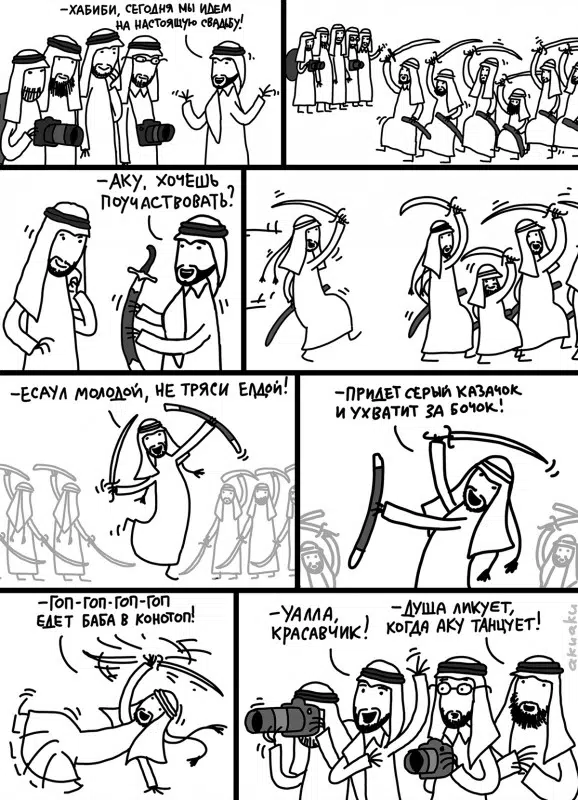 –ХАБИБИ, СЕГОДНЯ МЫ ИДЕМ
НА НАСТОЯЩУЮ СВАДЬБУ!
–АКУ, ХОЧЕШЬ
ПОУЧАСТВОВАТЬ?
–ЕСАУЛ МОЛОДОЙ, НЕ ТРЯСИ ЕЛДОЙ!
–ПРИДЕТ СЕРЫЙ КАЗАЧОК
И УХВАТИТ ЗА БОЧОК!
–ГОП-ГОП-ГОП-ГОП
ЕДЕТ БАБА В КОНОТОП!
–УАЛЛА,
КРАСАВЧИК!
–ДУША ЛИКУЕТ,
КОГДА АКУ ТАНЦУЕТ!
akuaku